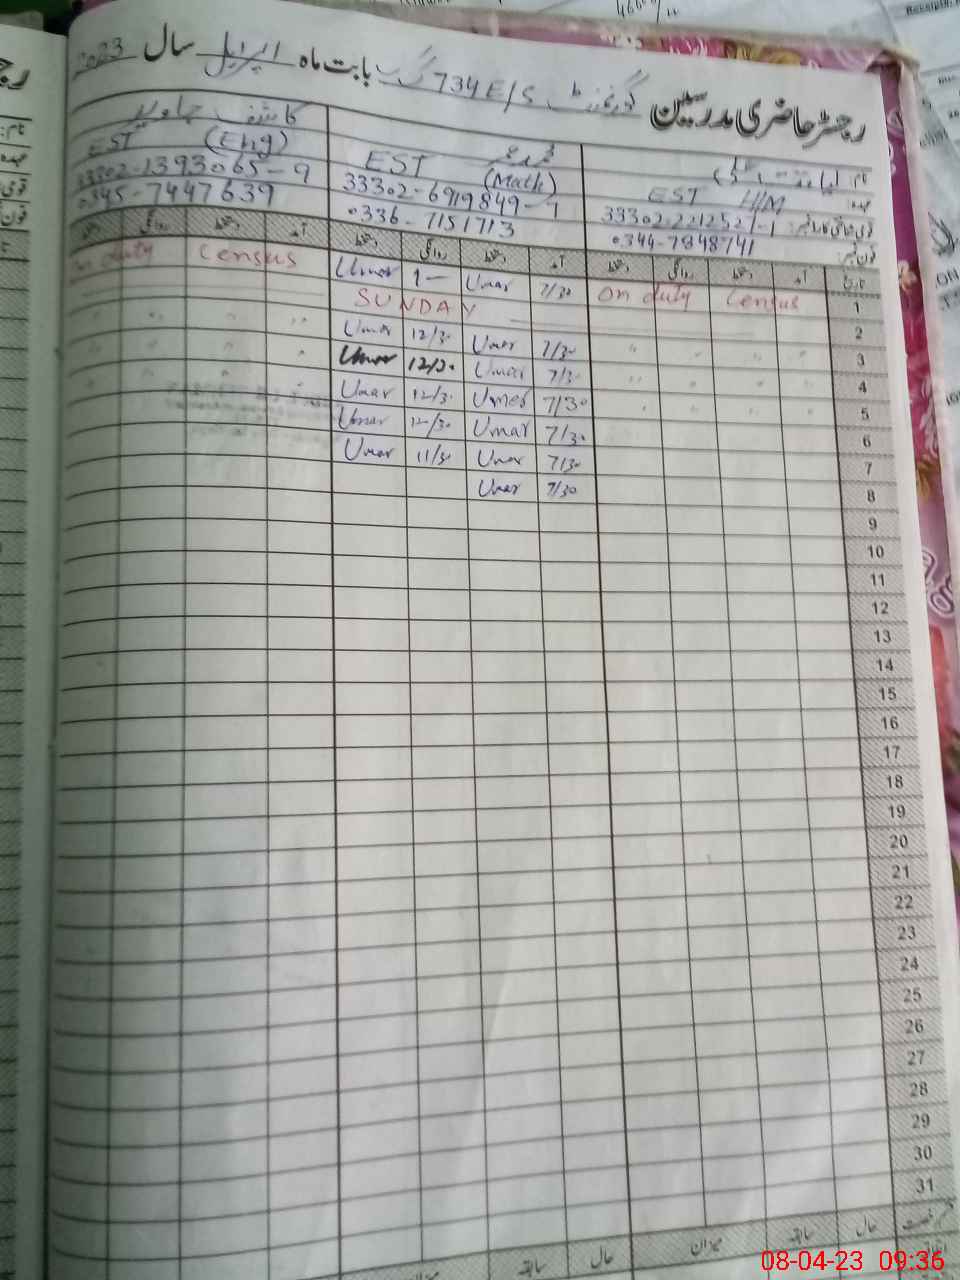 رجسٹر حاضری مدرسین گورنمنٹ 734 E/S گ ب بابت ماہ اپریل سال 2023
نام
EST H/M
0344-7848741
محمد عمر
EST (Math)
33302-6919849-1
0336-7151713
کاشف جاوید
EST (Eng)
33302-1393065-9
0345-7447639
تاریخ آمد دستخط روانگی دستخط آمد دستخط روانگی دستخط آمد دستخط روانگی
1 on duty Census 7/30 Umar 1- Umar on duty Census
2 SUNDAY
3 " " " 7/30 Umar 12/30 Umar " " "
4 " " " 7/30 Umar 12/30 Umar " " "
5 " " " 7/30 Umar 12/30 Umar " " "
6 7/30 Umar 12/30 Umar
7 7/30 Umar 11/30 Umar
8 7/30 Umar
9
10
11
12
13
14
15
16
17
18
19
20
21
22
23
24
25
26
27
28
29
30
31
حال سابقہ میزان حال سابقہ میزان
08-04-23 09:36